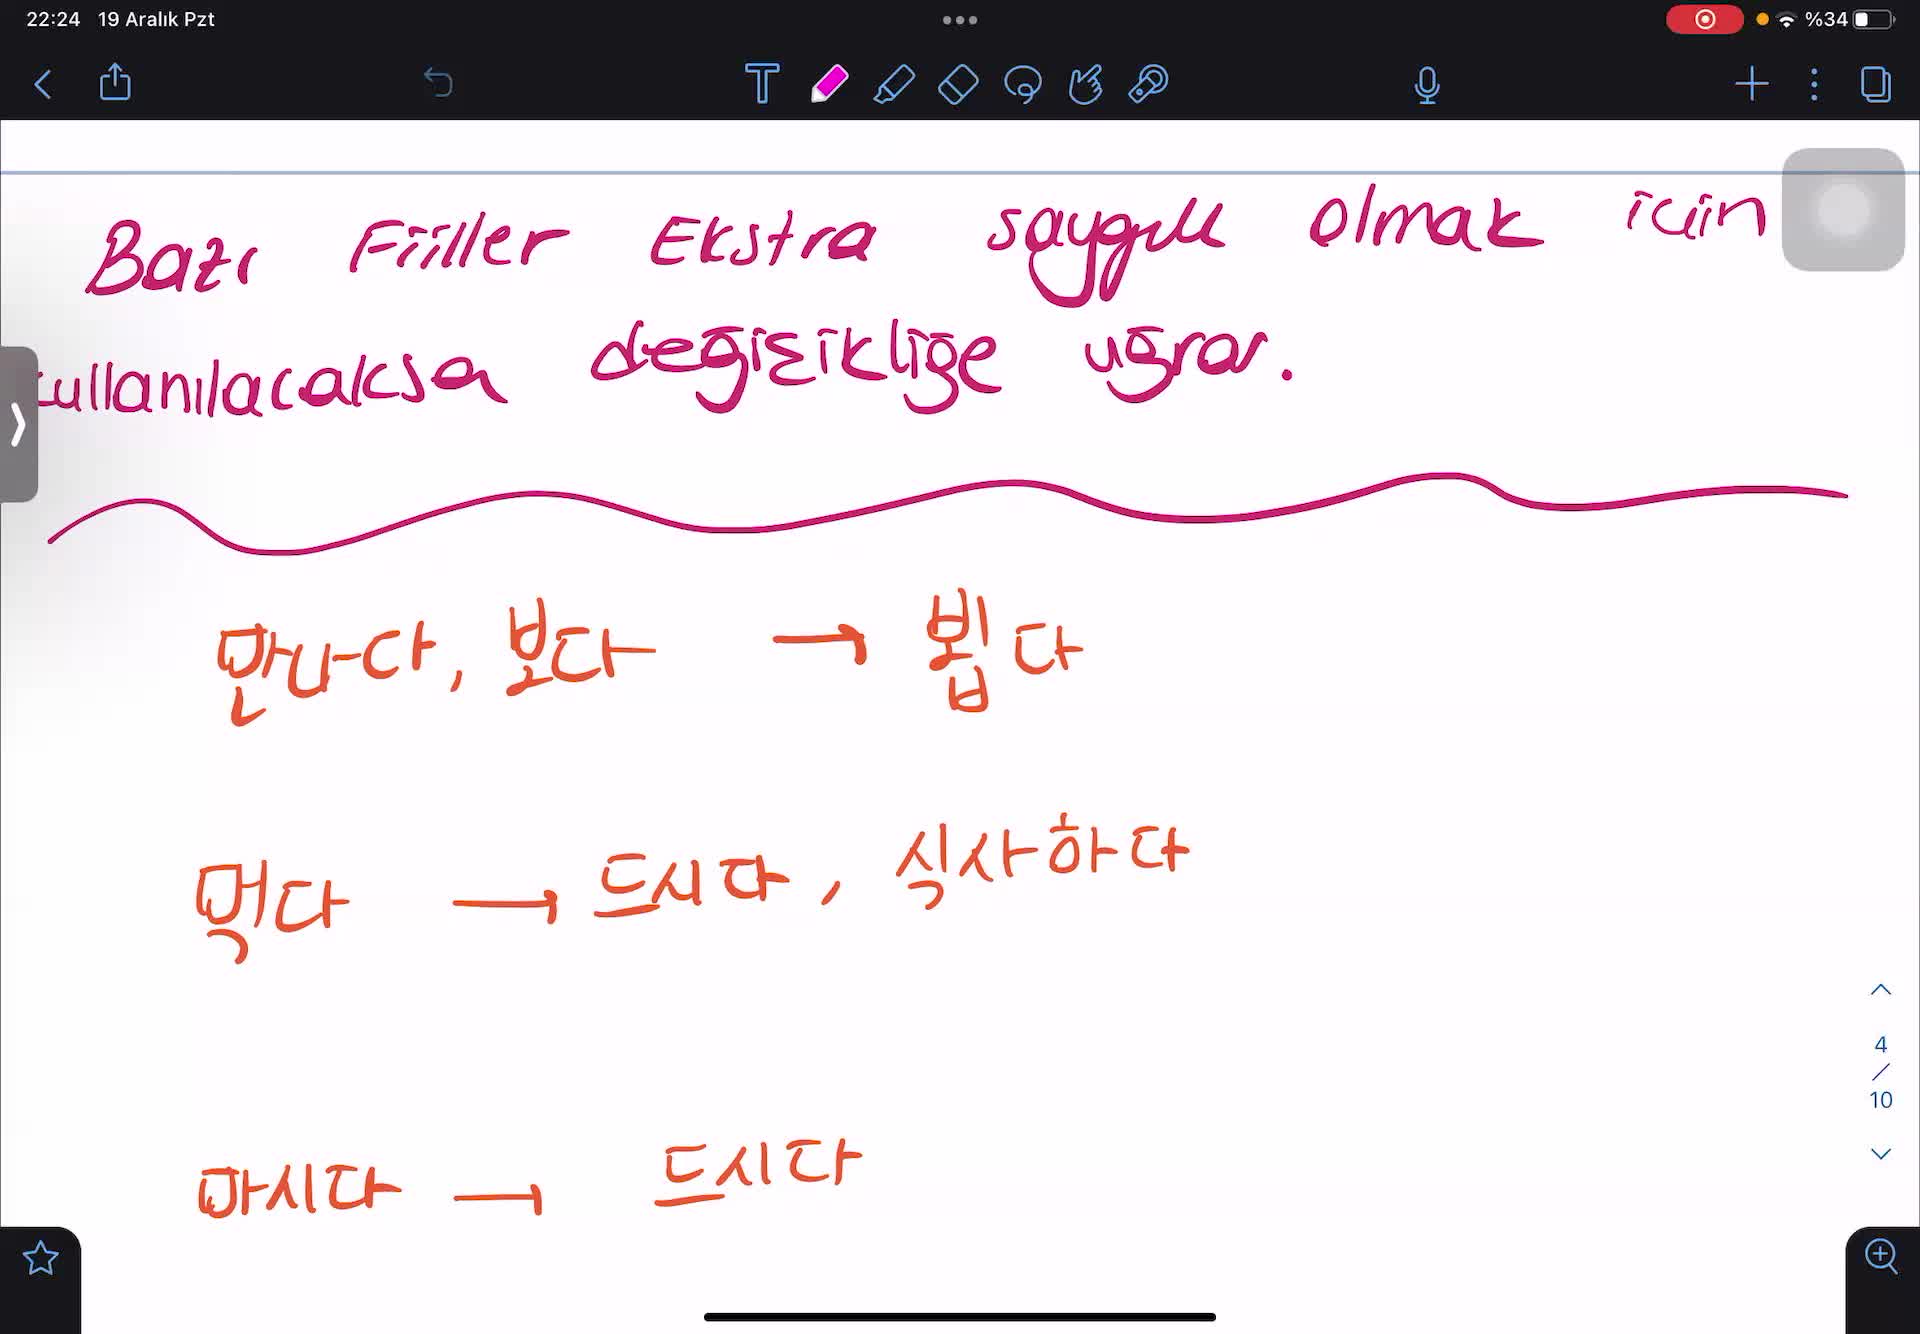 22:24 19 Aralık Pzt %34
Bazı Fiiller Ekstra saygılı olmak için
kullanılacaksa değişikliğe uğrar.
만나다, 보다 → 뵙다
먹다 → 드시다, 식사하다
4
/
10
마시다 → 드시다